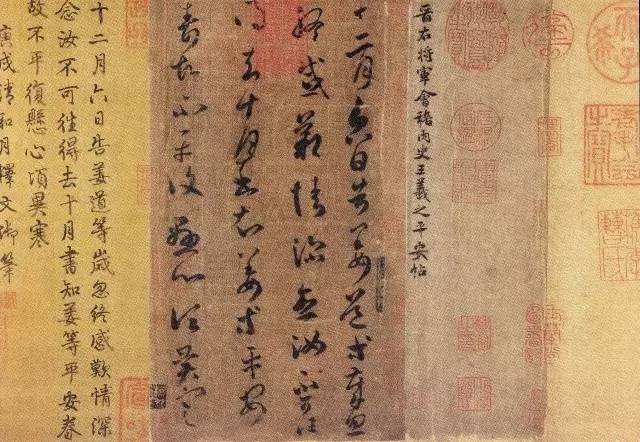 晉右將軍會稽内史王羲之平安帖
十二月六日告姜道等歲忽
終感歎情深念汝不可往
得去十月書知姜等平安
眷故不平復懸心頃異寒
十二月六日告姜道等歲忽終感歎情深
念汝不可徃得去十月書知姜等平安眷
故不平復懸心頃異寒
庚戌清和月釋文御筆